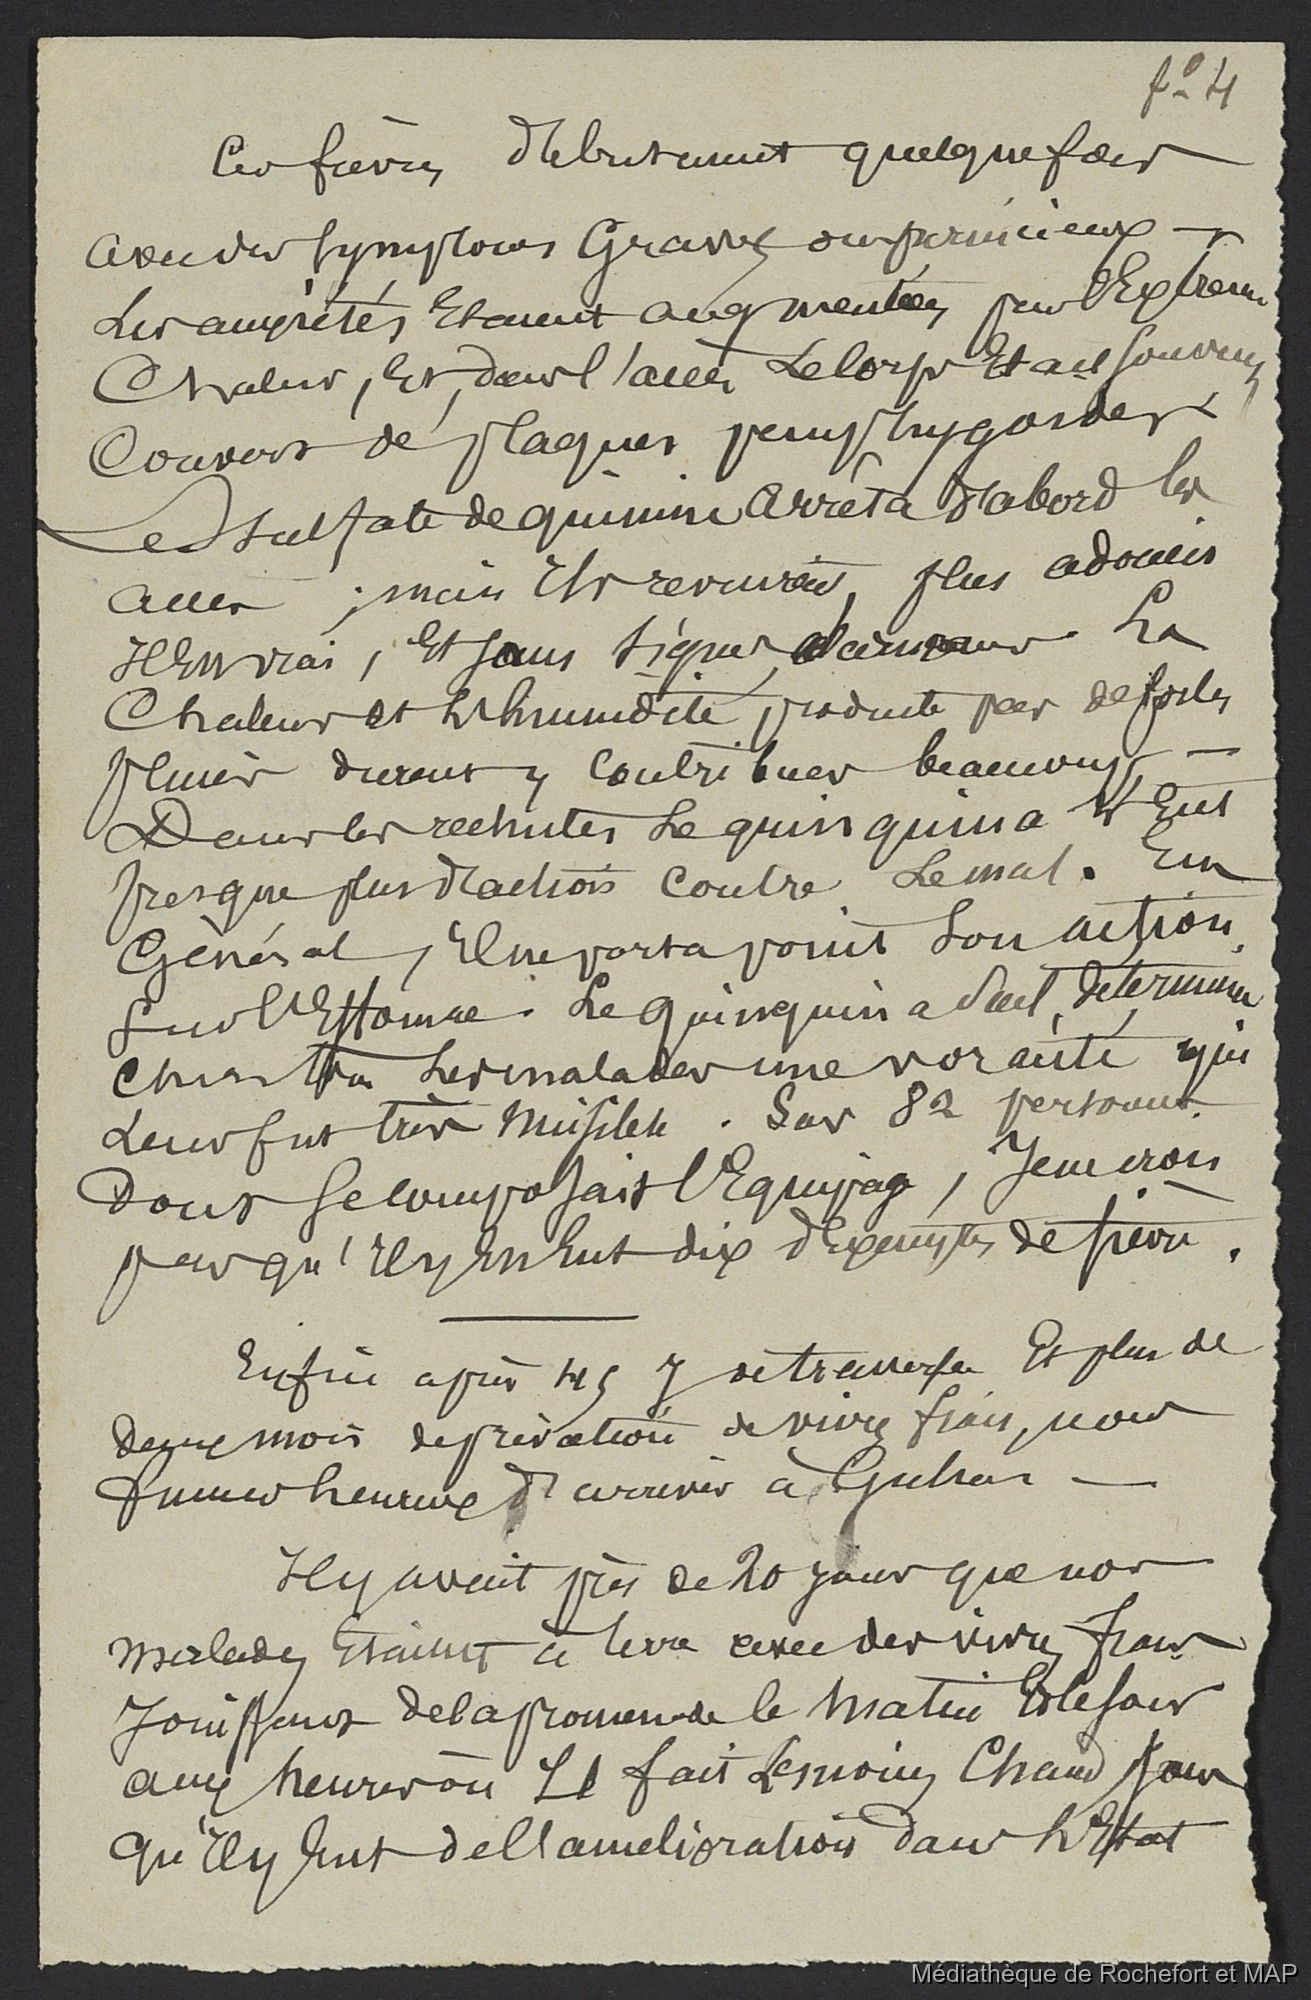 fo 4
Ces fièvres débutèrent quelquefois
avec des symptomes Graves ou pernicieux —
Les anxiétés Etaient augmentées par l'Extreme
Chaleur, Et, dans l'accès Le Corps Etait souvent
Couvert de plaques pemphygoides
Le Sulfate de quinine arrêta d'abord les
accès ; mais Ils revinrent, plus adoucis
Il Est vrai, Et sans signes La
Chaleur et L'humidité produite par de fortes
pluies durent y Contribuer beaucoup —
Dans les rechutes Le quinquina N'Eut
presque plus d'action Contre Le mal. En
Général, Il ne porta point son action
sur l'Estomac. Le quinquina seul détermina
chez tous Les malades une voracité qui
Leur fut très nuisible. Sur 82 personnes
dont se composait l'Equipage, Je ne crois
pas qu'Il y En Eut dix d'Exemptes de fièvre.
Enfin après 45 J de traversée Et plus de
deux mois de privation de vivres frais, nous
fumes heureux d'arriver à —
Il y avait près de 20 jours que nos
malades Etaient à terre avec des vivres frais
Jouissant de la promenade le Matin Et le soir
aux heures où Il fait Le moins Chaud sans
qu'Il y Eut de l'amelioration dans L'Etat
Médiathèque de Rochefort et MAP